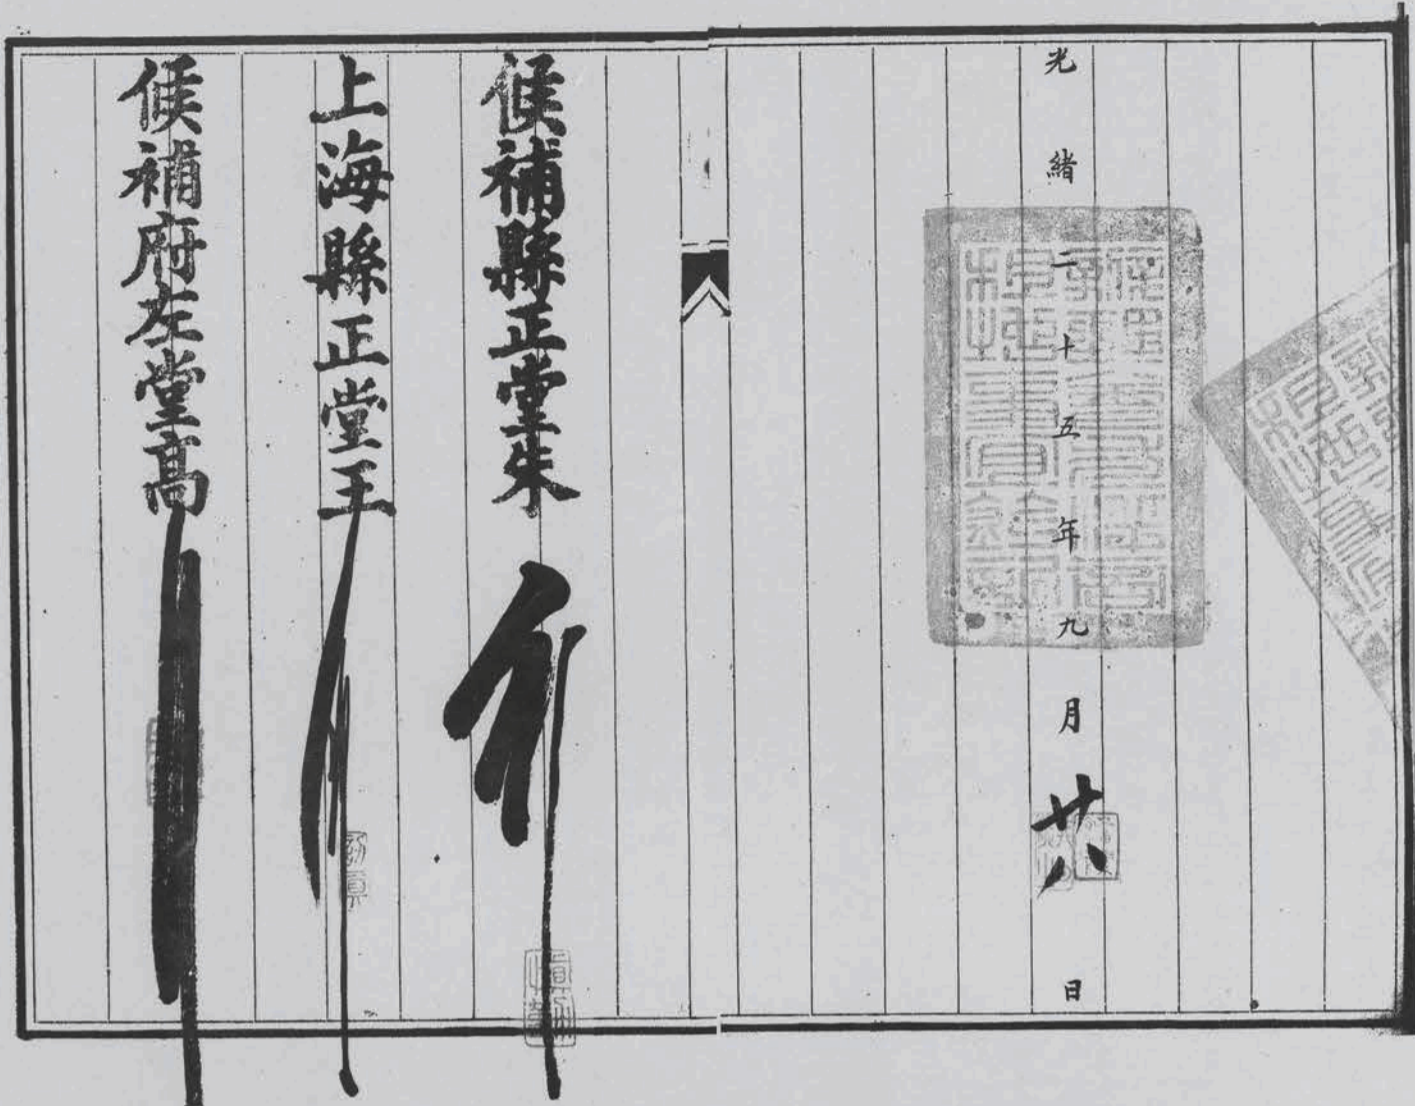 光緒二十五年九月廿八日
候補縣正堂朱
上海縣正堂王
候補府左堂高